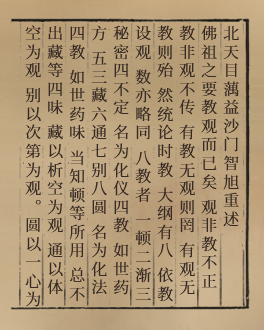 北天目蕅益沙门智旭重述
佛祖之要教观而已矣 观非教不正
教非观不传 有教无观则罔 有观无
教则殆 然统论时教 大纲有八 依教
设观 数亦略同 八教者 一顿二渐三
秘密四不定 名为化仪四教 如世药
方 五三藏六通七别八圆 名为化法
四教 如世药味 当知顿等所用 总不
出藏等四味 藏以析空为观 通以体
空为观 别以次第为观。圆以一心为